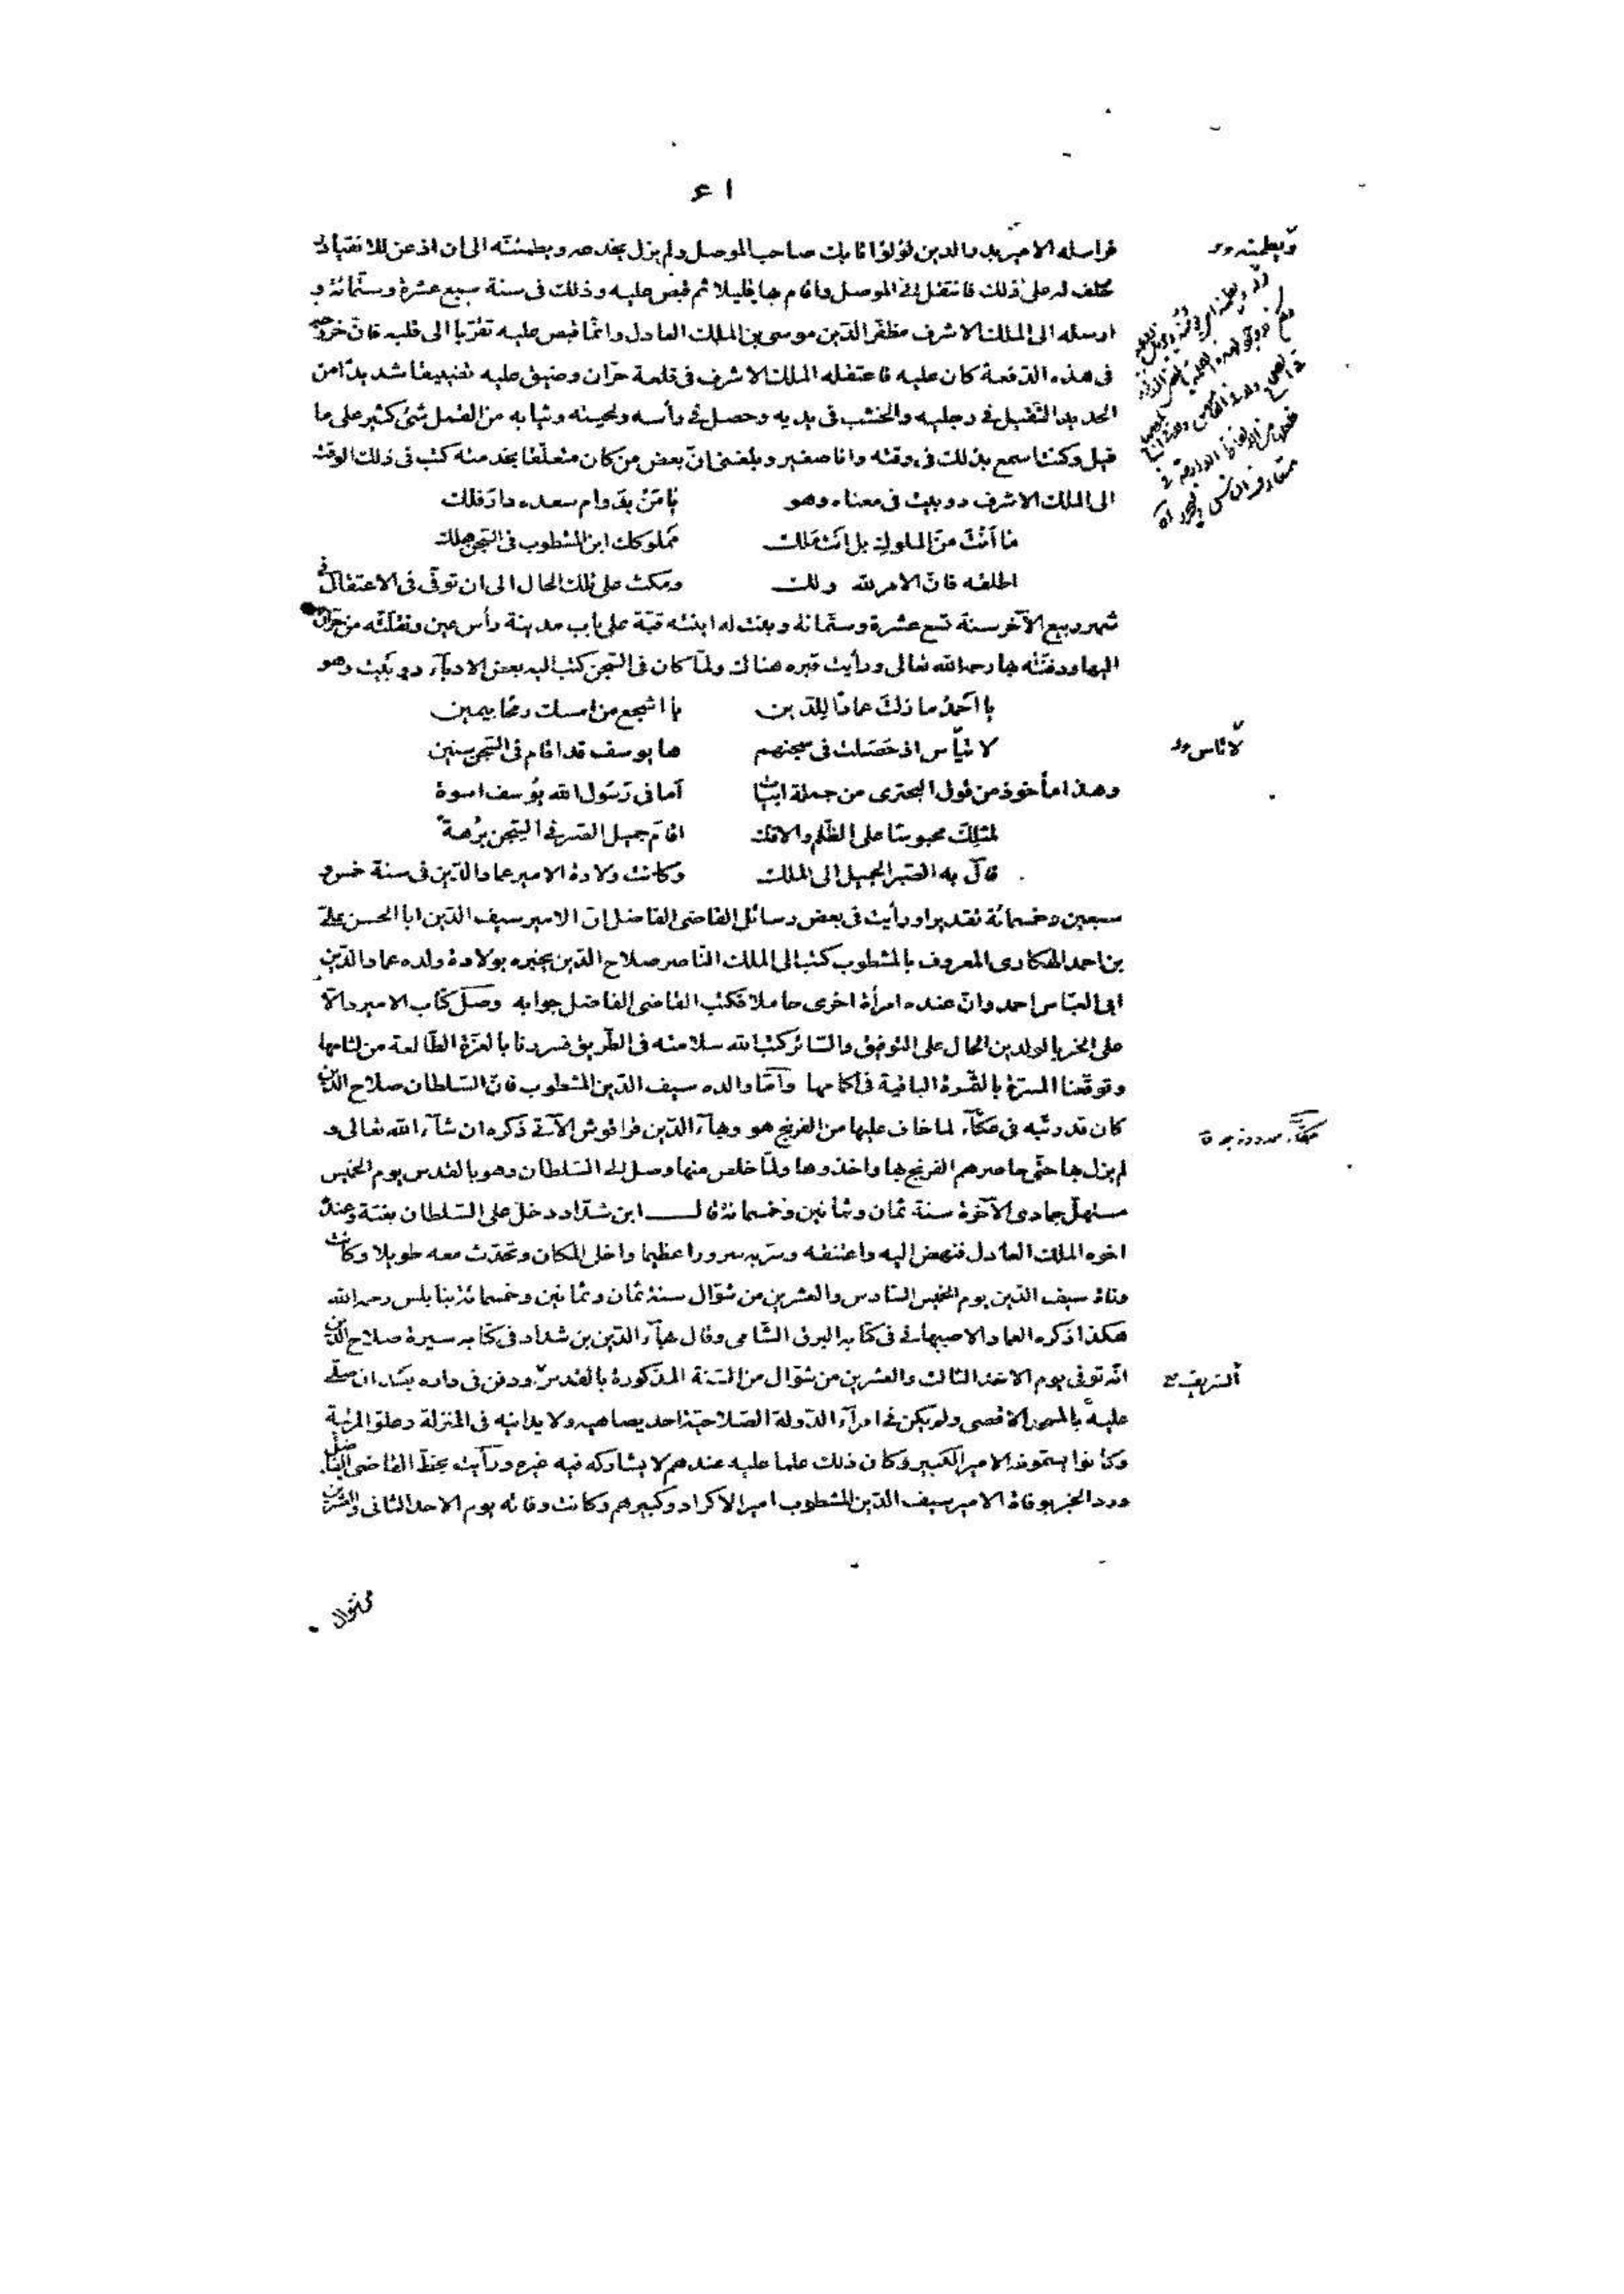 ٤١
فراسله الامير بدر الدين لؤلؤ اتابك صاحب الموصل ولم يزل يخدعه ويطمئنّه الى ان اذعن للانقياد
وحلف له على ذلك فانتقل الى الموصل واقام بها قليلا ثم قبض عليه وذلك فى سنة سبع عشرة وستمائة و
ارسله الى الملك الاشرف مظفّر الدّين موسى بن الملك العادل وانّما قبض عليه تقرّبا الى قلبه فانّ خروجه
فى هذه الدّفعة كان عليه فاعتقله الملك الاشرف فى قلعة حرّان وضيق عليه تضييقا شديدا من
الحديد الثّقيل فى رجليه والخشب فى يديه وحصل فى رأسه ولحيته وثيابه من القمل شئ كثير على ما
قيل وكنت اسمع بذلك فى وقته وانا صغير وبلغنى انّ بعض من كان متعلّقا بخدمته كتب فى ذلك الوقت
الى الملك الاشرف دوبيت فى معناه وهو يا مَنْ بدَوام سعده دار فلك
ما اَنْتَ منَ الملوك بل انت ملك مملوكك ابن المشطوب فى السّجن هلك
اطلقه فانّ الامر لله ولك ومكث على تلك الحال الى ان توفّى فى الاعتقال فى
شهر ربيع الآخر سنة تسع عشرة وستّمائة وبنت له ابنته قبّة على باب مدينة رأس عين ونقلته من حرّان
اليها ودفنته بها رحمه الله تعالى ورأيت قبره هناك ولمّا كان فى السّجن كتب اليه بعض الادباء دوبيت وهو
يا اَحمدُ ما زلتَ عمادًا للدّين يا اشجع من امسك رمحًا بيمين
لا تيأس اذ حَصَلتَ فى سجنهم ها يوسف قد اقام فى السّجن سنين
وهذا مأخوذ من قول البحترى من جملة ابيات اَما فى رَسُول الله يوُسف اسوة
لمثلك محبوسا على الظّلم والافك اقامَ جميل الصّبر فى السّجن بُرهةً
فآل به الصّبر الجميل الى الملك وكانت ولادة الامير عماد الدّين فى سنة خمس و
سبعين وخمسمائة تقديرا ورأيت فى بعض رسائل القاضى الفاضل انّ الامير سيف الدّين ابا الحسن علىّ
بن احمد الهكارى المعروف بالمشطوب كتب الى الملك النّاصر صلاح الدّين يخبره بولادة ولده عماد الدّين
ابى العبّاس احمد وانّ عنده امرأة اخرى حاملا فكتب القاضى الفاضل جوابه وصَل كتاب الامير دالاّ
على الخبر بالولدين الحال على التّوفيق والسّائر كتب الله سلامته فى الطّريق فسررنا بالغرّة الطّالعة من لثامها
وتوقّعنا المسرّة بالثّمرة الباقية فى اكمامها وامّا والده سيف الدّين المشطوب فانّ السّلطان صلاح الدّين
كان قد رتّبه فى عكّآء لما خاف عليها من الفرنج هو وبهآء الدّين قراقوش الآتى ذكره ان شآء الله تعالى و
لم يزل بها حتّى حاصرهم الفرنج بها واخذوها ولمّا خلص منها وصل الى السّلطان وهو بالقدس يوم الخميس
مستهلّ جمادى الآخرة سنة ثمان وثمانين وخمسمائة قال ابن شدّاد دخل على السّلطان بغتة وعنده
اخوه الملك العادل فنهض اليه واعتنقه وسرّ به سرورا عظيما واخلى المكان وتحدّث معه طويلا وكانت
وفاة سيف الدّين يوم الخميس السّادس والعشرين من شوّال سنة ثمان وثمانين وخمسمائة بنابلس رحمه الله
هكذا ذكره العماد الاصبهانى فى كتابه البرق الشّامى وقال بهآء الدّين بن شدّاد فى كتابه سيرة صلاح الدّين
انّه توفى يوم الاحد الثالث والعشرين من شوّال من السّنة المذكورة بالقدس ودفن فى داره بعد ان صلّى
عليه بالمسجد الاقصى ولم يكن فى امرآء الدّولة الصّلاحيّة احد يضاهيه ولا يدانيه فى المنزلة وعلوّ المرتبة
وكانوا يسمّونه الامير الكبير وكان ذلك علما عليه عندهم لا يشاركه فيه غيره ورأيت بخطّ القاضى الفاضل
ورد الخبر بوفاة الامير سيف الدّين المشطوب امير الاكراد وكبيرهم وكانت وفاته يوم الاحد الثانى والعشرين
من شوال
ويطمئنه
لا تاس
عكّاء
الشريف